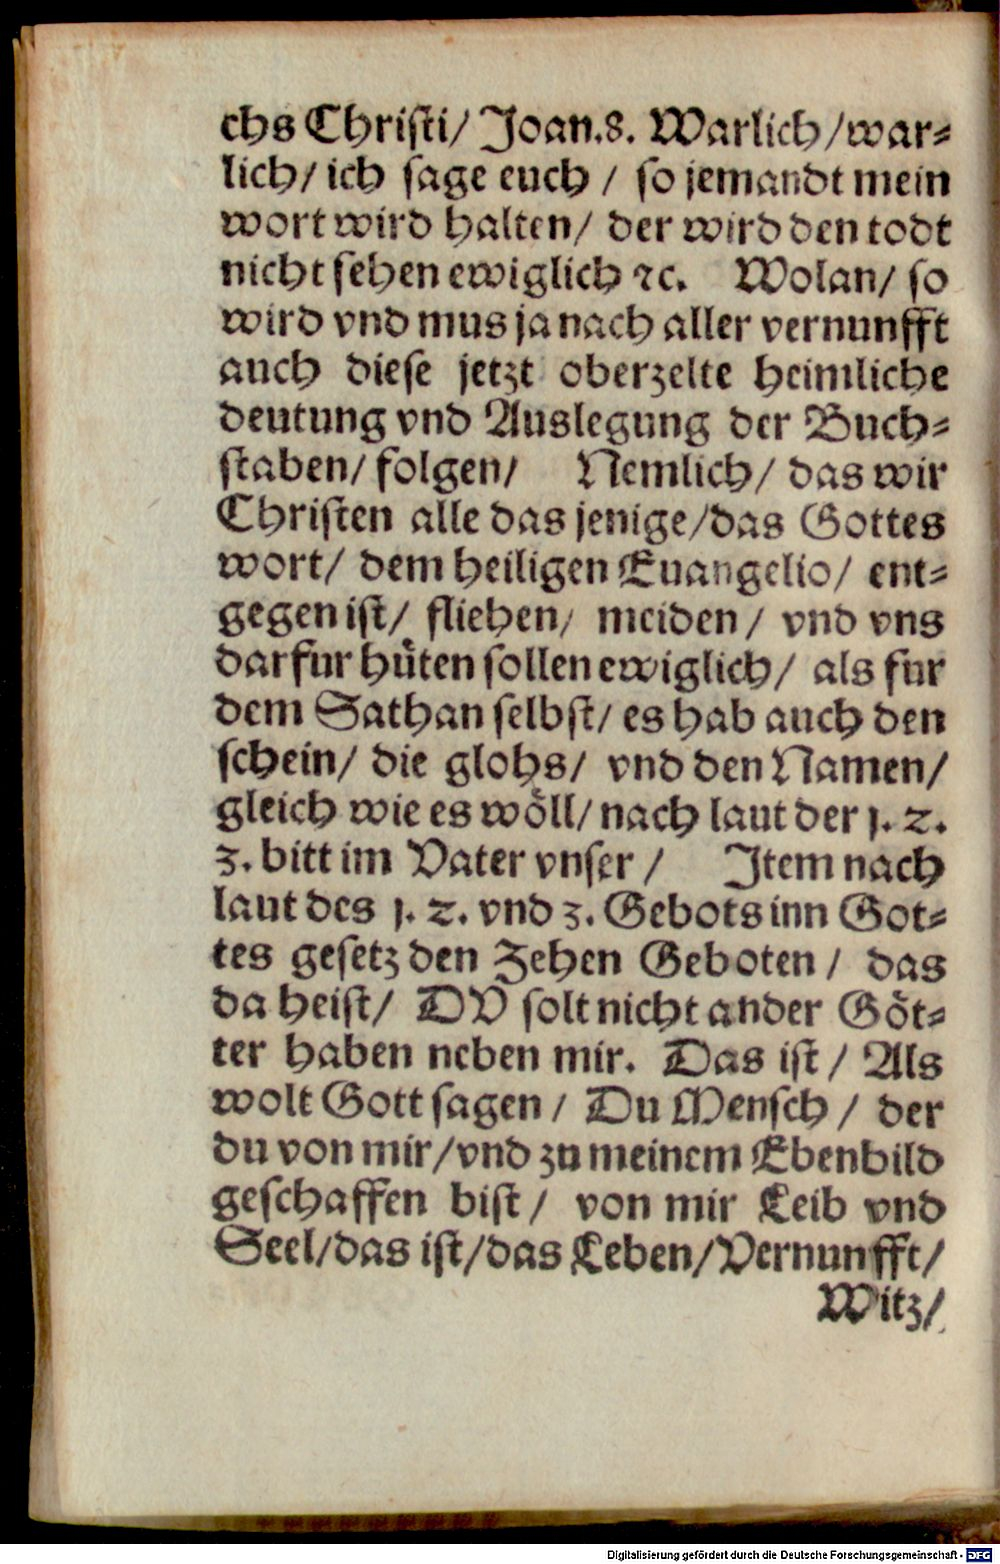 chs Christi/ Joan.8. Warlich/war⸗
lich/ ich sage euch / so jemandt mein
wort wird halten/ der wird den todt
nicht sehen ewiglich ꝛc. Wolan/ so
wird vnd mus ja nach aller vernunfft
auch diese jetzt oberzelte heimliche
deutung vnd Auslegung der Buch⸗
staben/ folgen/ Nemlich/ das wir
Christen alle das jenige/das Gottes
wort/ dem heiligen Euangelio/ ent⸗
gegen ist/ fliehen/ meiden / vnd vns
darfur hüten sollen ewiglich/ als fur
dem Sathan selbst/ es hab auch den
schein/ die glohs/ vnd den Namen/
gleich wie es wöll/ nach laut der 1. 2.
3. bitt im Vater vnser / Item nach
laut des 1. 2. vnd 3. Gebots inn Got⸗
tes gesetz den Zehen Geboten / das
da heist/ DV solt nicht ander Göt⸗
ter haben neben mir. Das ist / Als
wolt Gott sagen / Du Mensch / der
du von mir/vnd zu meinem Ebenbild
geschaffen bist / von mir Leib vnd
Seel/das ist/das Leben/Vernunfft/
Witz/
Digitalisierung gefördert durch die Deutsche Forschungsgemeinschaft - DFG